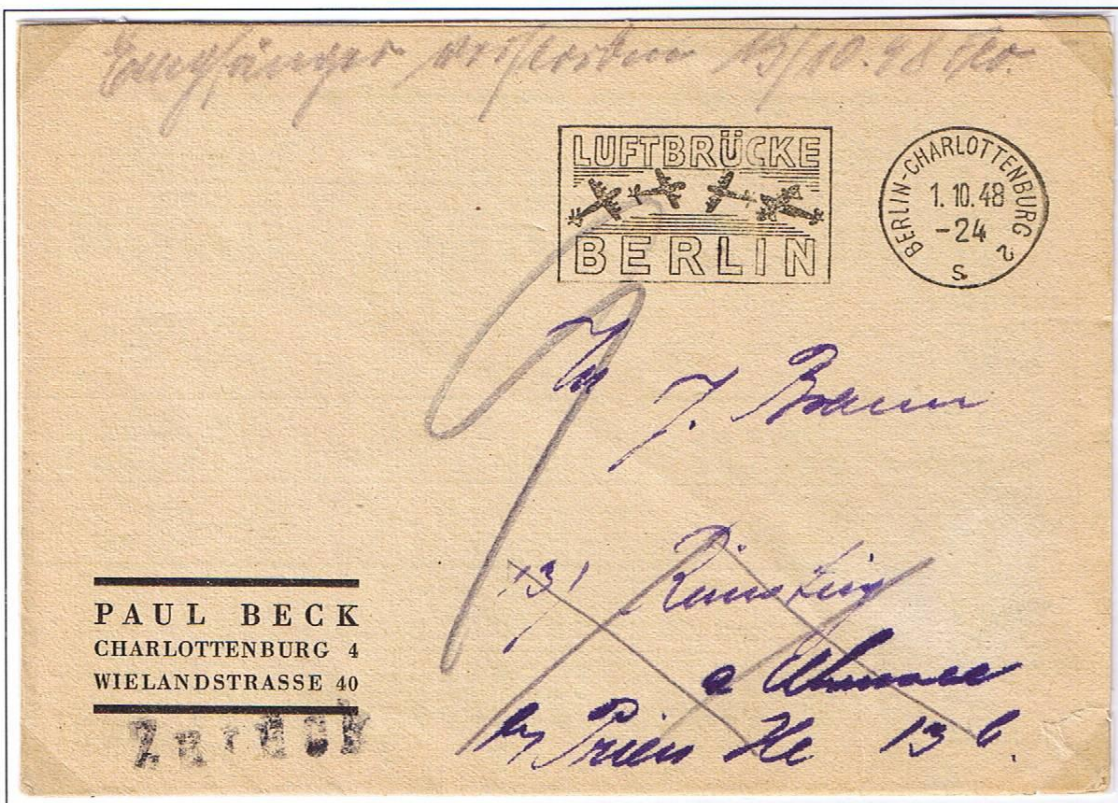 Empfänger verstorben 13/10.48
LUFTBRÜCKE
BERLIN
BERLIN-CHARLOTTENBURG 2
1.10.48
-24
S
J. Braun
13)
Rimsting
by Prien 136.
PAUL BECK
CHARLOTTENBURG 4
WIELANDSTRASSE 40
Zurück